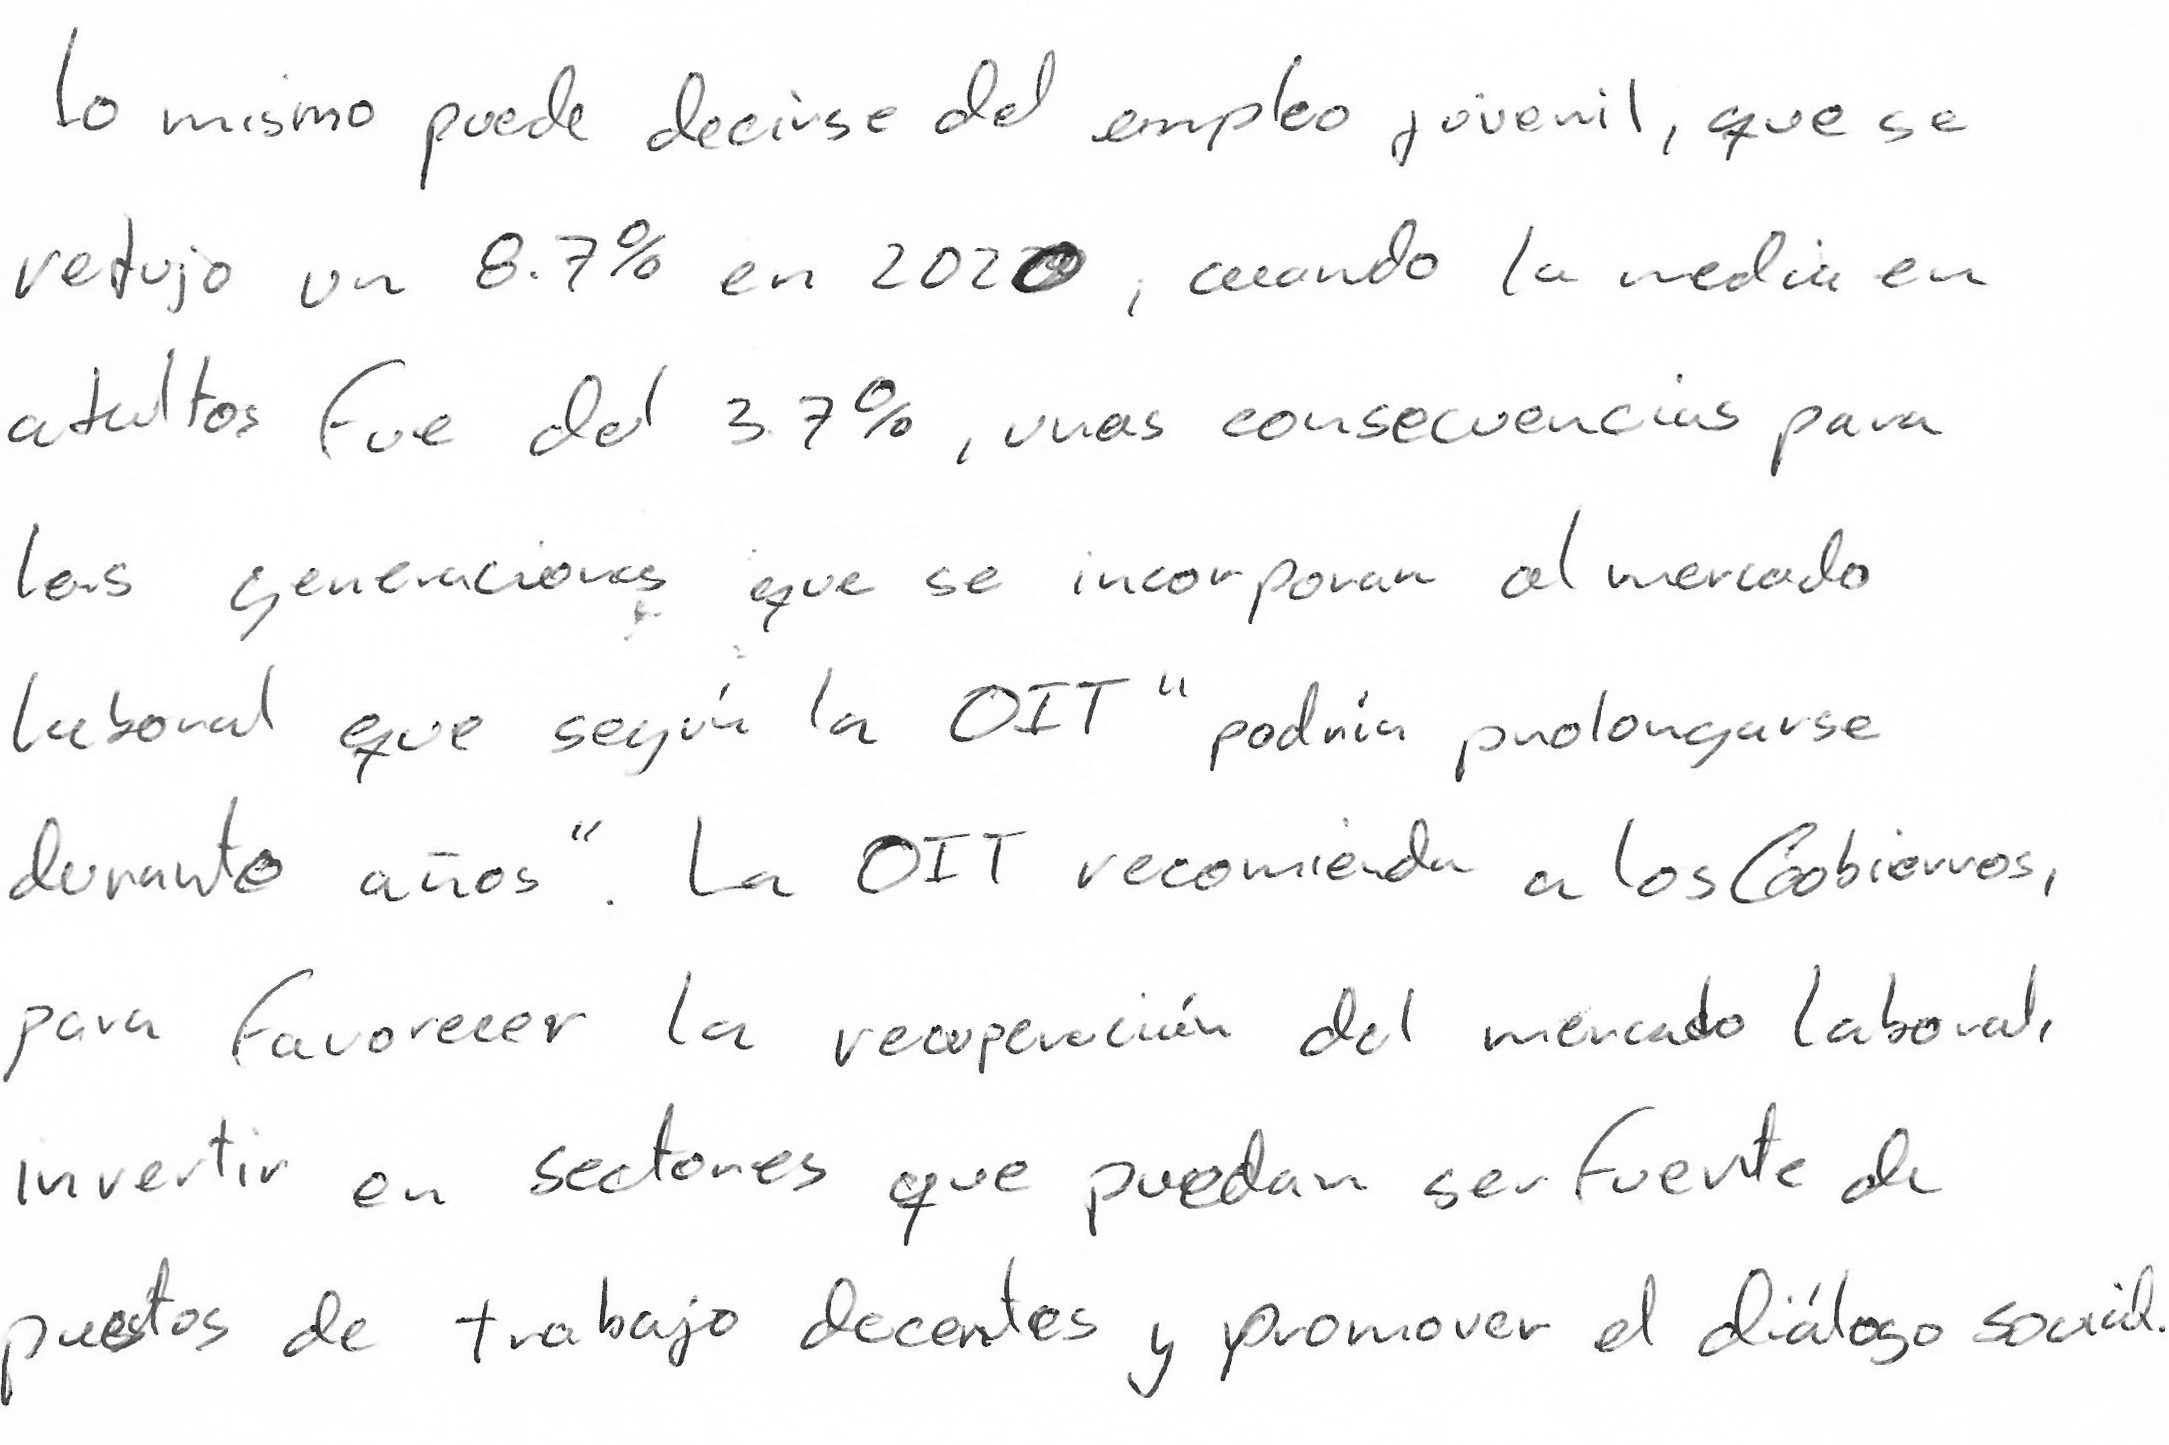 Lo mismo puede decirse del empleo juvenil, que se
redujo un 8.7% en 2020, cuando la media en
adultos fue del 3.7%, unas consecuencias para
las generaciones que se incorporan al mercado
laboral que según la OIT "podría prolongarse
durante años". La OIT recomienda a los Gobiernos,
para favorecer la recuperación del mercado laboral,
invertir en sectores que puedan ser fuente de
puestos de trabajo decentes y promover el diálogo social.